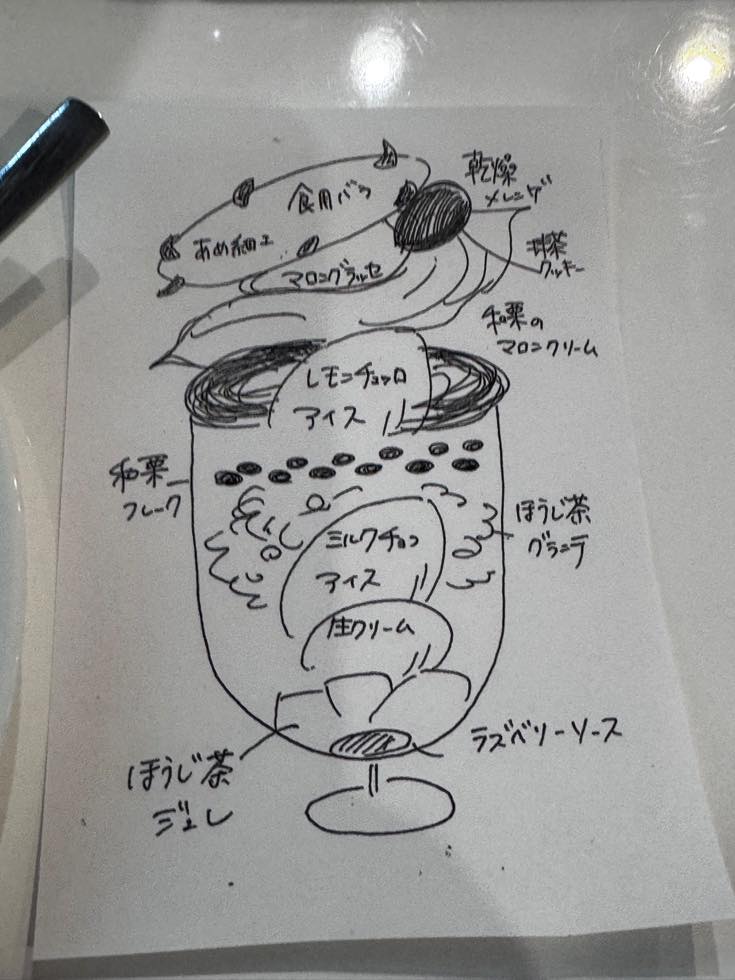 食用バラ
乾燥
メレンゲ
あめ細工
マロングラッセ
抹茶
クッキー
和栗の
マロンクリーム
レモンチョコ
アイス
和栗
フレーク
ほうじ茶
グラニテ
ミルクチョコ
アイス
生クリーム
ラズベリーソース
ほうじ茶
ジュレ